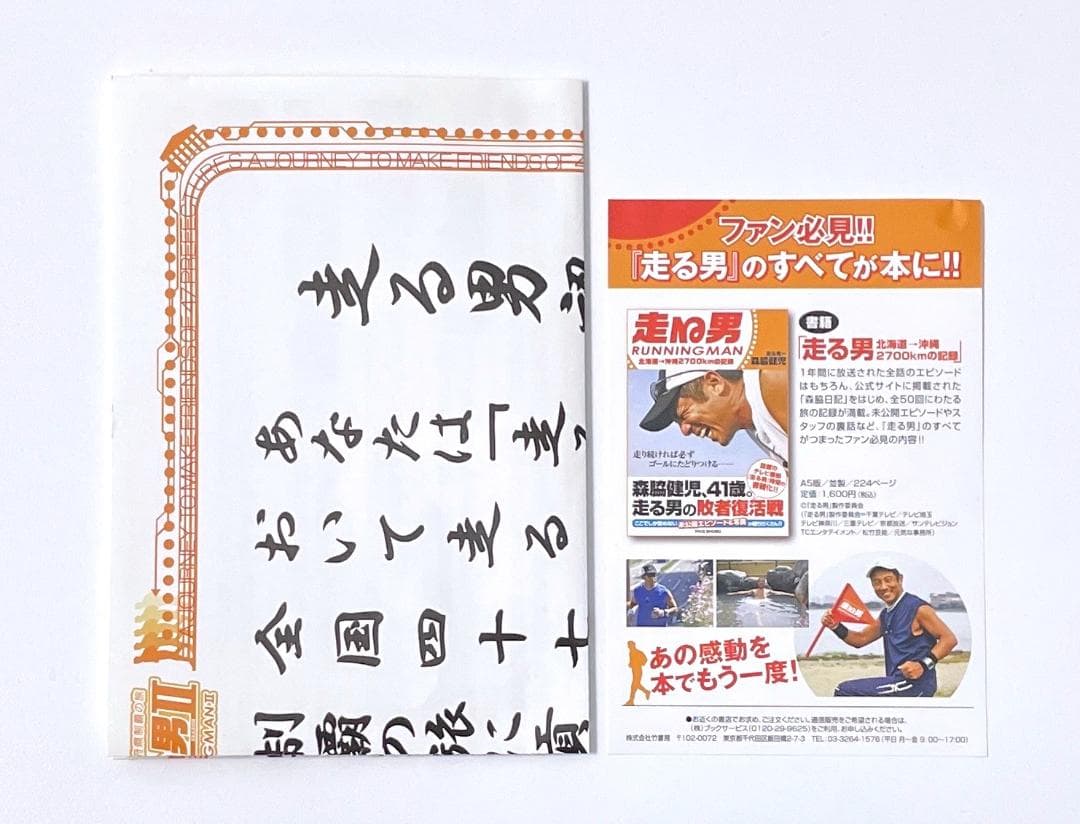 TURES A JOURNEY TO MAKE FRIENDS OF 4
A JOURNEY TO MAKE FRIENDS OF 47 PREFECTURES
走る男
あなたは「走
おいて走る
全国四十七
制覇の旅に
男II
NGMAN-II
ファン必見!!
『走る男』のすべてが本に!!
走る男
RUNNINGMAN
北海道→沖縄2700kmの記録
森脇健児
走り続ければ必ず
ゴールにたどりつける——
森脇健児、41歳。
走る男の敗者復活戦
書籍
「走る男 北海道→沖縄
2700kmの記録」
1年間に放送された全話のエピソード
はもちろん、公式サイトに掲載された
「森脇日記」をはじめ、全50回にわたる
旅の記録が満載。未公開エピソードやス
タッフの裏話など、『走る男』のすべて
がつまったファン必見の内容!!
A5版/並製/224ページ
定価:1,600円(税込)
©『走る男』製作委員会
(『走る男』製作委員会=千葉テレビ/テレビ埼玉
テレビ神奈川/三重テレビ/京都放送/サンテレビジョン
TCエンタテイメント/松竹芸能/元気な事務所)
走る男
あの感動を
本でもう一度!
●お近くの書店でお求め、ご注文ください。通信販売をご希望される場合は、
(株)ブックサービス(0120-29-9625)をご利用、お申し込みください。
株式会社竹書房 〒102-0072 東京都千代田区飯田橋2-7-3 TEL:03-3264-1576(平日 月~金 9:00~17:00)